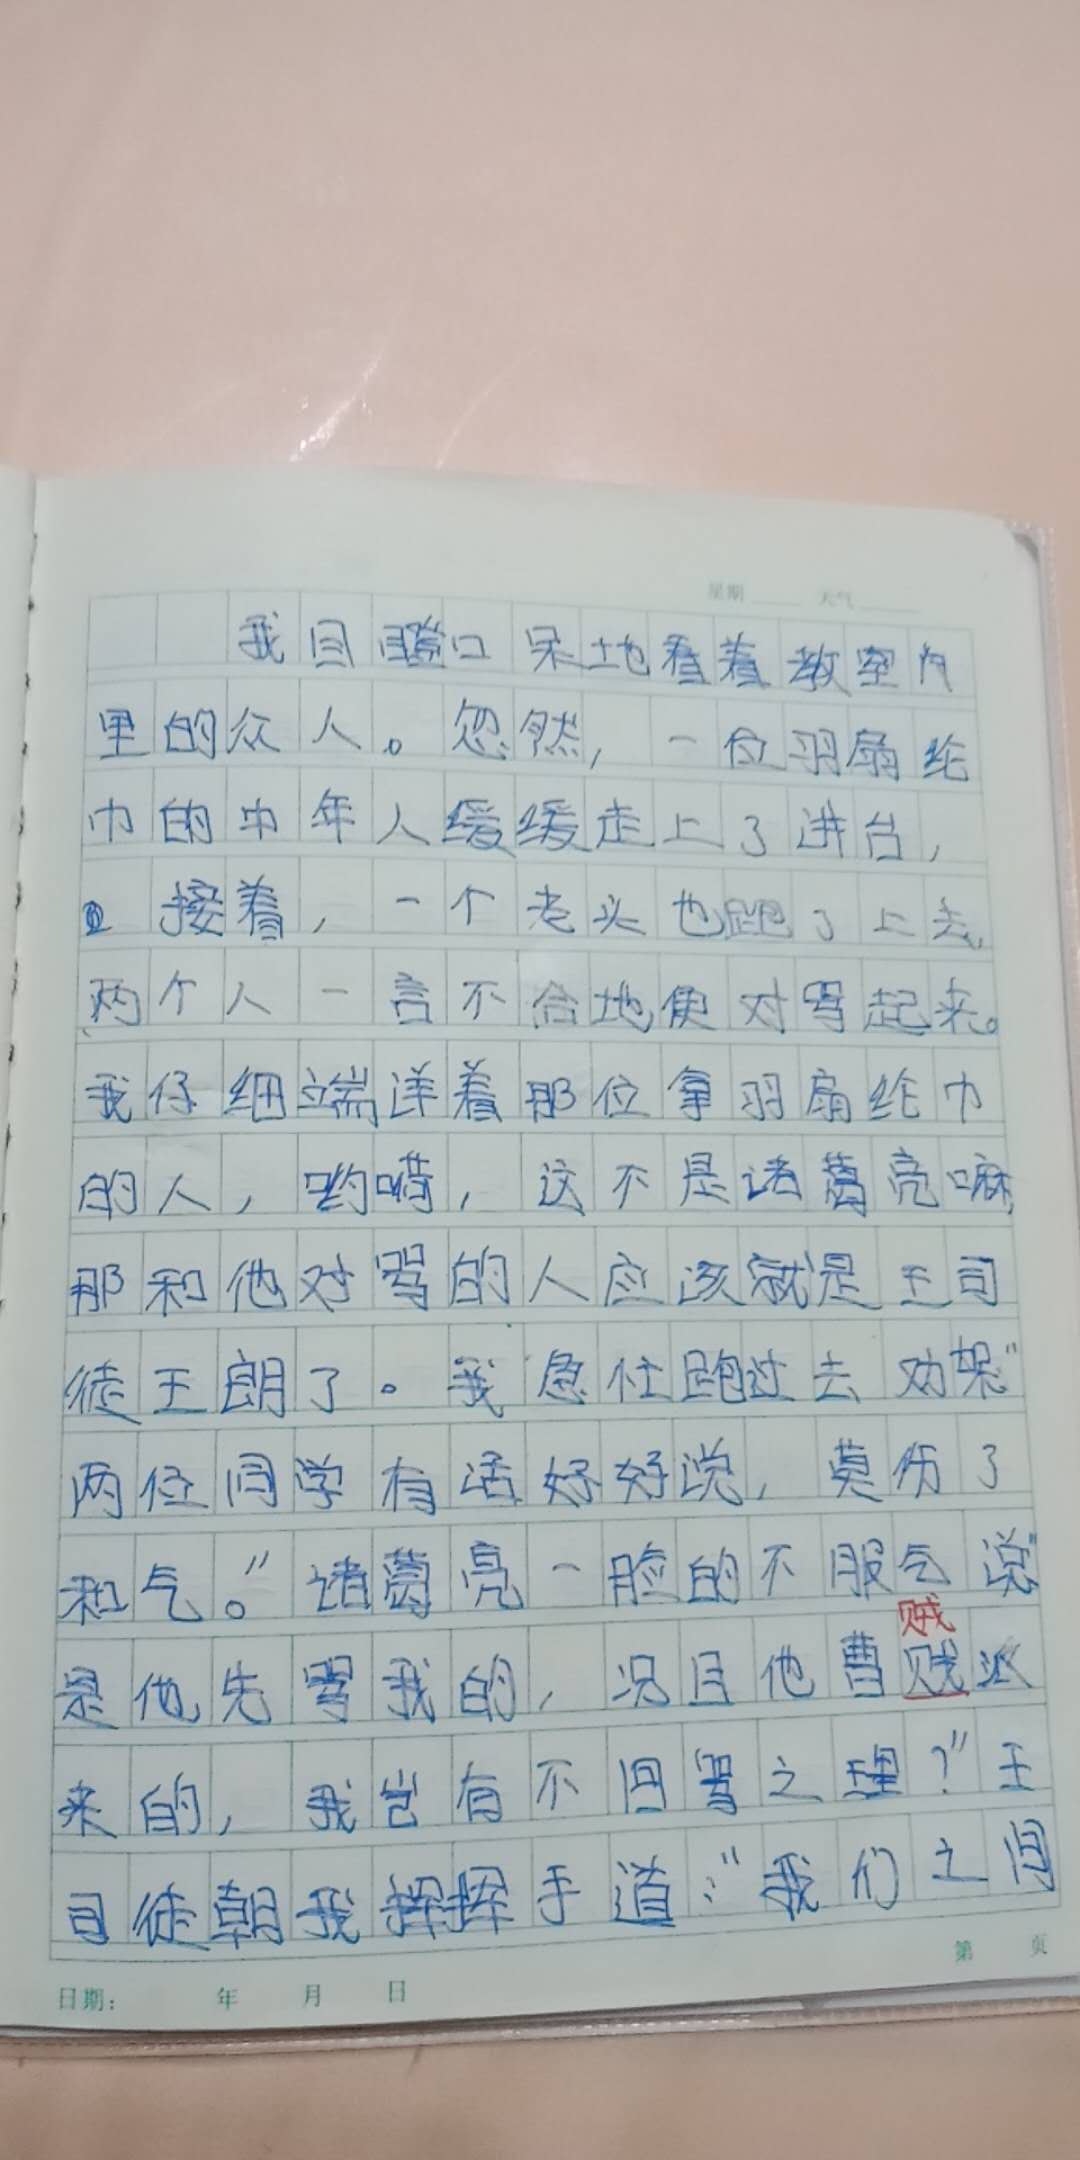 星期 天气
我目瞪口呆地看着教室内
里的众人。忽然,一位羽扇纶
巾的中年人缓缓走上了讲台,
接着,一个老头也跑了上去,
两个人一言不合地便对骂起来。
我仔细端详着那位拿羽扇纶巾
的人,哟嗬,这不是诸葛亮嘛,
那和他对骂的人应该就是王司
徒王朗了。我急忙跑过去劝架"
两位同学有话好好说,莫伤了
和气。"诸葛亮一脸的不服气说"
贼
是他先骂我的,况且他曹贼派
来的,我岂有不回骂之理?"王
司徒朝我挥挥手道:"我们之间
第 页
日期: 年 月 日